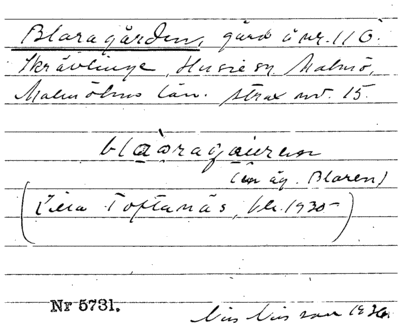 Blaragården, gård å nr. 116
Skrävlinge, Husie sn, Malmö,
Malmöhus län. strax nv. 15.
blaaragaueren
(en äg. Blaren)
(Lilla Toftanäs, bl. 1930-)
Nr 5731.
1936.